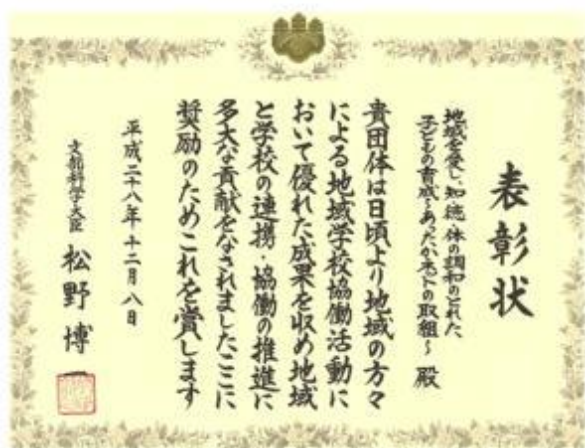 表彰状
地域を愛し、知・徳・体の調和のとれた、
子どもの育成～あったかネットの取組～ 殿
貴団体は日頃より地域の方々
による地域学校協働活動に
おいて優れた成果を収め地域
と学校の連携・協働の推進に
多大な貢献をなされましたここに
奨励のためこれを賞します
平成二十八年十二月八日
文部科学大臣 松野博一